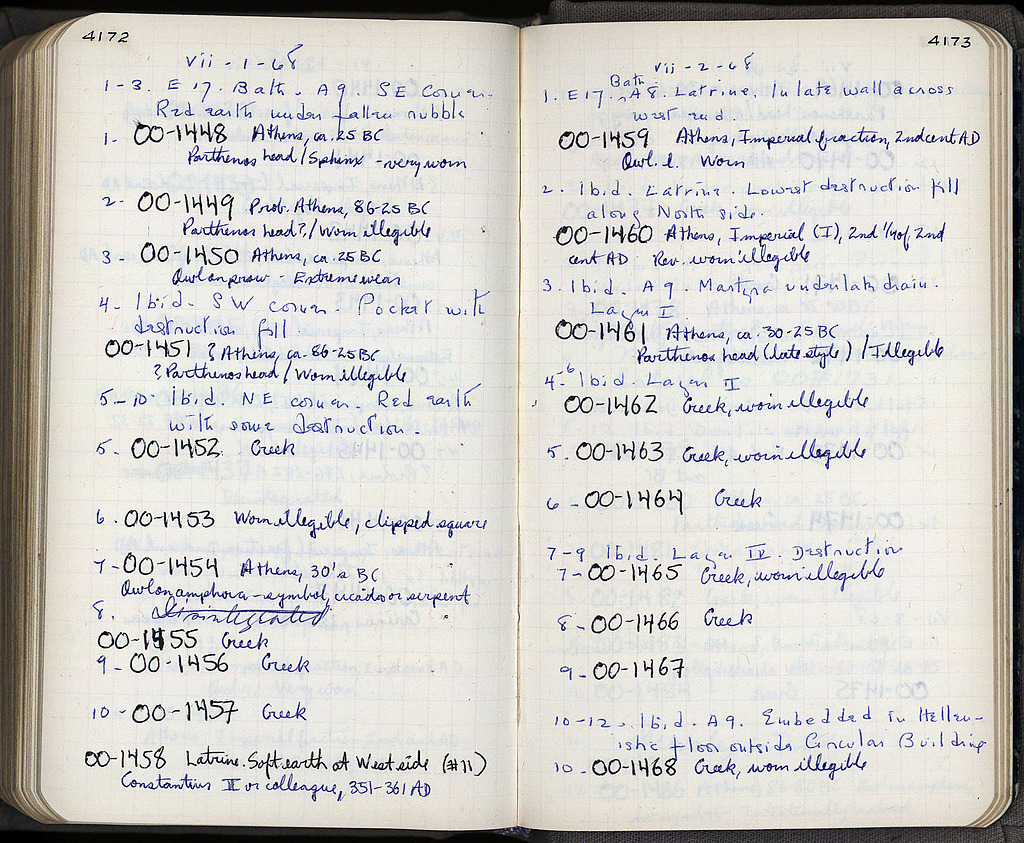 4172
vii - 1 - 68
1 - 3. E 17. Bath. A 9. SE Corner.
Red earth under fallen rubble
1. OO-1448 Athens, ca. 25 BC
Parthenos head / Sphinx - very worn
2 - OO-1449 Prob. Athens, 86-25 BC
Parthenos head? / Worn illegible
3 - OO-1450 Athens, ca. 25 BC
Owl on prow - Extreme wear
4 - Ibid. SW corner. Pocket with
destruction fill
OO-1451 ? Athens, ca. 86-25 BC
? Parthenos head / Worn illegible
5 - 10. Ibid. NE corner. Red earth
with some destruction.
5. OO-1452 Greek
6. OO-1453 Worn illegible, clipped square
7 - OO-1454 Athens, 30's BC
Owl on amphora - symbol, cicada or serpent
8. Disintegrated
OO-1455 Greek
9 - OO-1456 Greek
10 - OO-1457 Greek
OO-1458 Latrine. Soft earth at West side (#11)
Constantius II or colleague, 351-361 AD
4173
vii - 2 - 68
1. E 17. Bath A 8. Latrine. In late wall across
west end.
OO-1459 Athens, Imperial fraction, 2nd cent AD
Owl l. Worn
2. Ibid. Latrine. Lowest destruction fill
along North side.
OO-1460 Athens, Imperial (I), 2nd 1/4 of 2nd
cent AD Rev. worn illegible
3. Ibid. A 9. Martyra under late drain.
Layer I
OO-1461 Athens, ca. 30-25 BC
Parthenos head (late style) / Illegible
4 - 6 Ibid. Layer II
OO-1462 Greek, worn illegible
5. OO-1463 Greek, worn illegible
6 - OO-1464 Greek
7 - 9 Ibid. Layer IV. Destruction
7 - OO-1465 Greek, worn illegible
8 - OO-1466 Greek
9 - OO-1467
10 - 12. Ibid. A 9. Embedded in Hellen-
istic floor outside Circular Building
10 - OO-1468 Greek, worn illegible